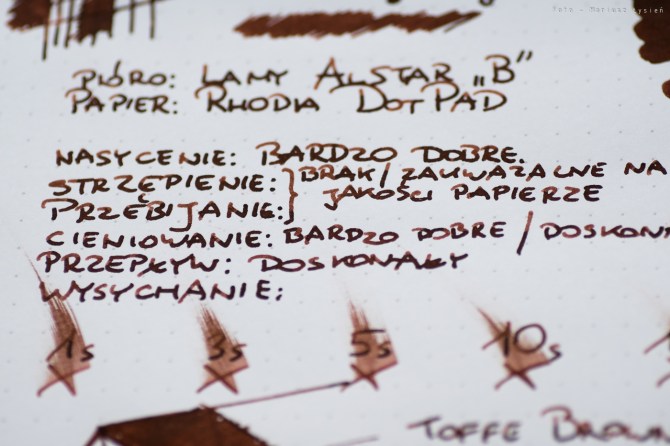 Foto - Mariusz Rysień
PIÓRO: LAMY ALSTAR „B”
PAPIER: RHODIA DOTPAD
NASYCENIE: BARDZO DOBRE.
STRZĘPIENIE: } BRAK / ZAUWAŻALNE NA
PRZEBIJANIE: } JAKOŚCI PAPIERZE
CIENIOWANIE: BARDZO DOBRE / DOSKON
PRZEPŁYW: DOSKONAŁY
WYSYCHANIE:
1s 3s 5s 10s
TOFFE BROW